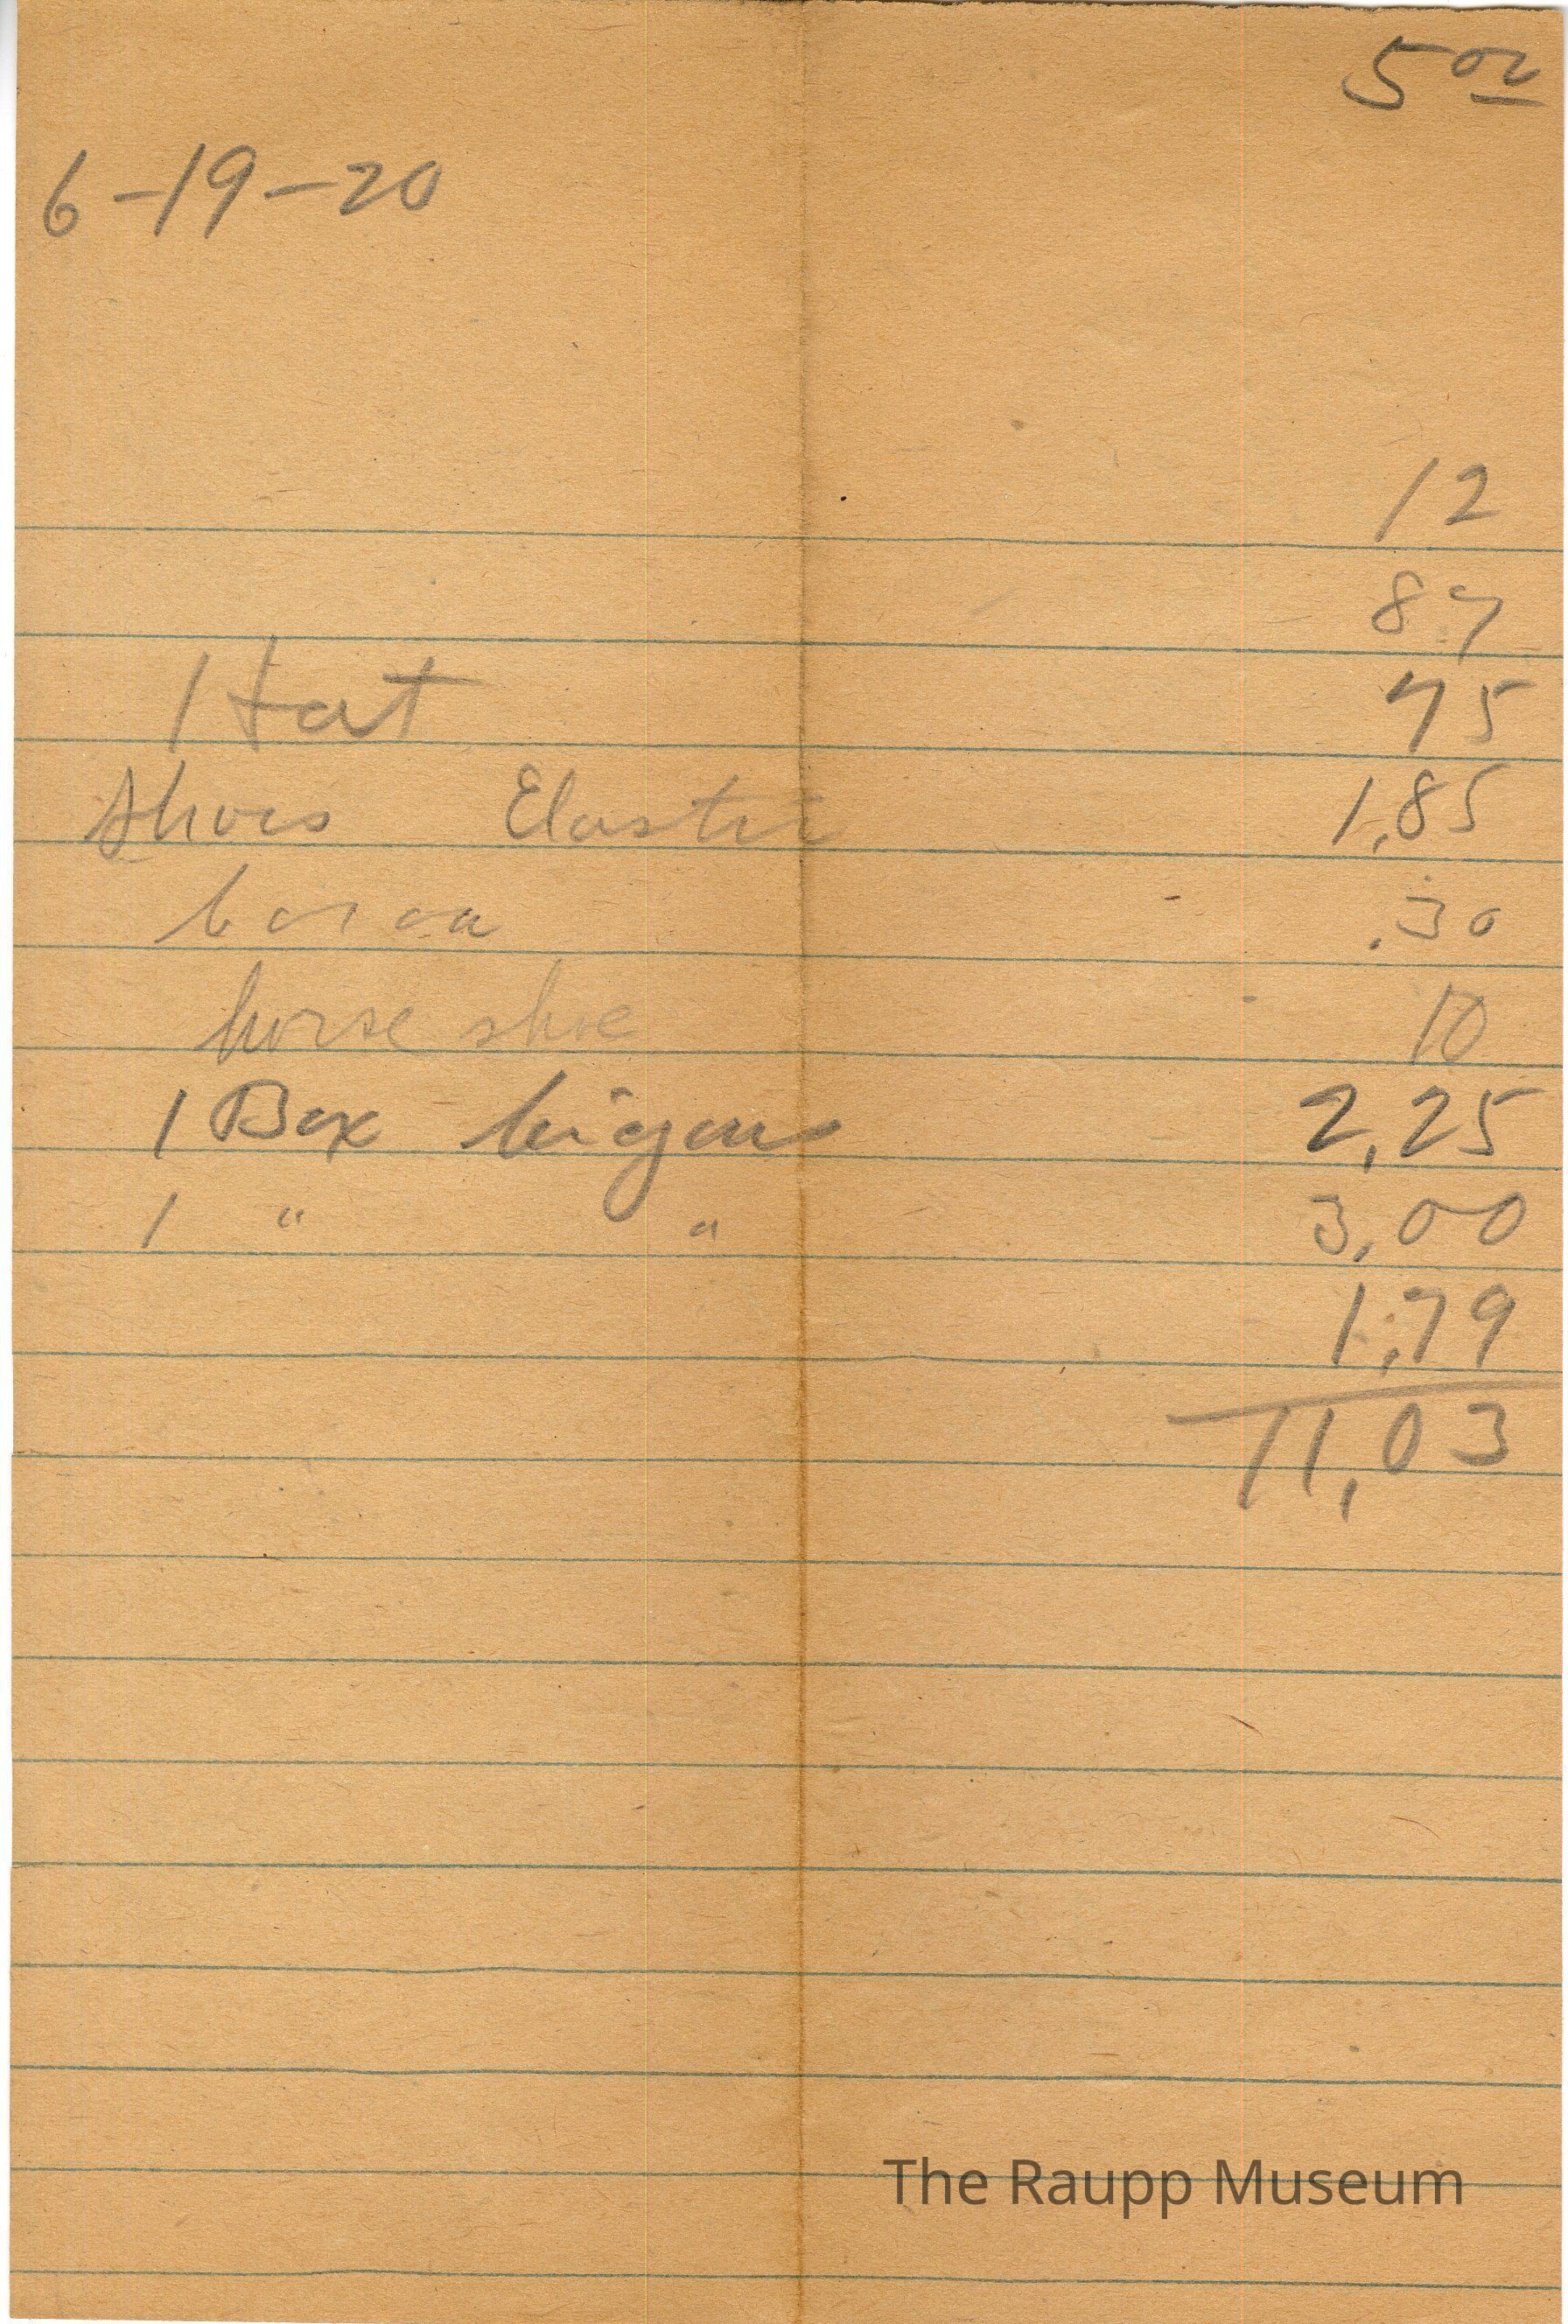 5 00
6-19-20
12
87
Hat 75
Shoes Elastic 1,85
Cocoa .30
horse shoe 10
1 Box Cigars 2,25
1 " " 3,00
1,79
11,03
The Raupp Museum